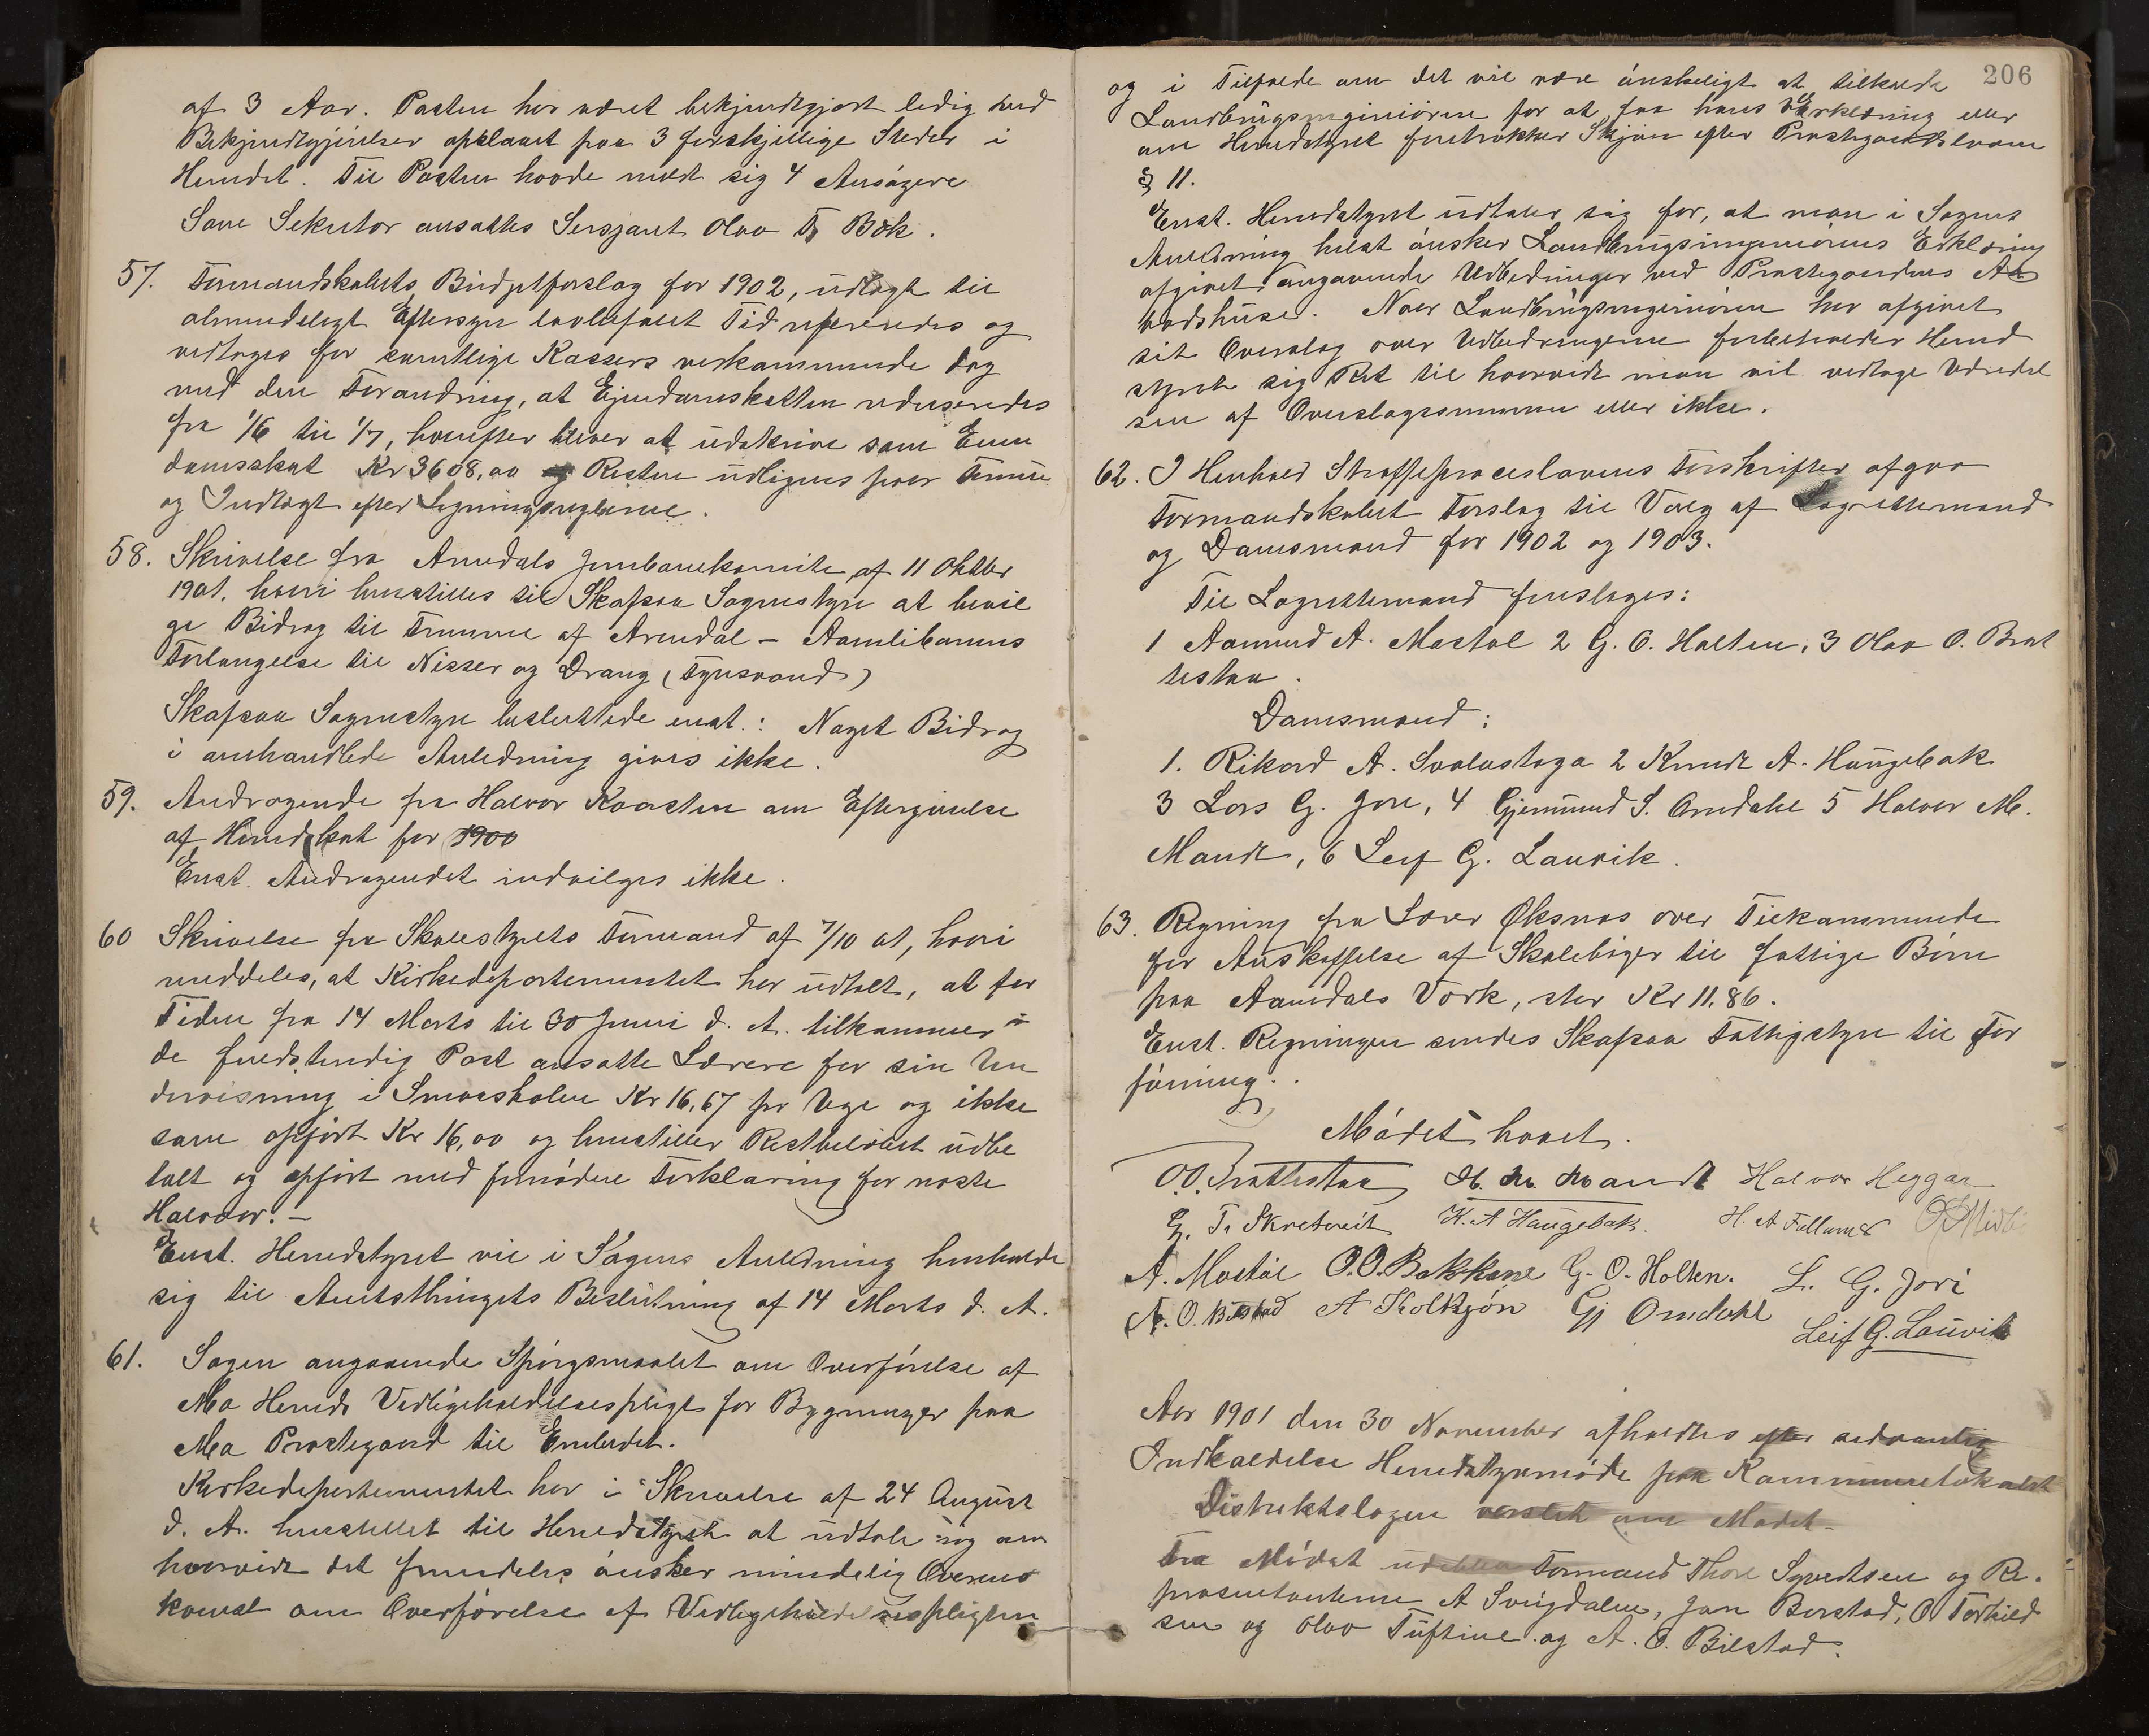 af 3 Aar. Posten har været bekjendtgjort ledig ved
Bekjendtgjørelser opslaaet paa 3 forskjellige Steder i
Herredet. Til Posten havde meldt sig 4 Ansøgere
Som Sekretær ansattes Sersjant Olav Bæk.
57. Formandskabets Budgetforslag for 1902, udlagt til
almindeligt Eftersyn lovbefalet Tid refereredes og
vedtoges for samtlige Kassers vedkommende dog
med den Forandring, at Ejendomskatten reduseredes
fra 1/6 til 1/7, hvorefter bliver at udskrive som Eien
domsskat Kr 3608,00 Resten udlignes paa Formue
og Indtægt efter Ligningsreglerne.
58. Skrivelse fra Arendals Jernbanekomite af 11 Oktbr
1901, hvori henstilles til Skafsaa Sognestyre at bevil
ge Bidrag til Fremme af Arendal - Aamlibanens
Forlængelse til Nisser og Drang (Fyrisvand)
Skafsaa Sognestyre besluttede enst.: Noget Bidrag
i omhandlede Anledning gives ikke.
59. Andragende fra Halvor Kaasten om Eftergivelse
af Herredskat for 1900
Enst. Andragendet indvilges ikke.
60 Skrivelse fra Skolestyrets Formand af 7/10 01, hvori
meddeles, at Kirkedepartementet har udtalt, at for
Tiden fra 14 Marts til 30 Juni d. A. tilkommer
de fuldstendig Post ansatte Lærere for sin Un
dervisning i Smaaskolen Kr 16,67 pr Uge og ikke
som opført Kr 16,00 og henstiller Restbeløbet udbe
talt og opført med fornøden Forklaring for næste
Halvaar. -
Enst. Herredstyret vil i Sagens Anledning henholde
sig til Amtsthingets Beslutning af 14 Marts d. A.
61. Sagen angaaende Spørgsmaalet om Overførelse af
Mo Herreds Vedligeholdelsespligt for Bygninger paa
Mo Prestegaard til Embedet.
Kirkedepartementet har i Skrivelse af 24 August
d. A. henstillet til Herredstyret at udtale sig om
hvorvidt det fremdeles ønsker mindelig Overens
komst om Overførelse af Vedligeholdelsespligten
206
og i Tilfælde om det vil være ønskeligt at tilkalde
Landbrugsingeniøren for at faa hans Erklæring eller
om Herredstyret foretrækker Skjøn efter Prestegaardsloven
§ 11.
Enst. Herredstyret udtaler sig for, at man i Sagens
Anledning helst ønsker Landbrugsingeniørens Erklæring
afgivet angaaende Udbedringer ved Prestegaardens Aa
bodshuse. Naar Landbrugsingeniøren har afgivet
sit Overslag over Udbedringerne forbeholder Herred
styret sig Ret til hvorvidt man vil vedtage Udredel
sen af Overslagssummen eller ikke.
62. I Henhold Straffeproceslovens Forskrifter afgav
Formandskabet Forslag til Valg af Lagrettemænd
og Domsmænd for 1902 og 1903.
Til Lagrettemænd foreslages:
1 Aamund A. Mostøl 2 G. O. Holten, 3 Olav O. Brat
testaa.
Domsmænd:
1. Rikard A. Svalastoga 2 Knudt A. Haugebak
3 Lars G. Jore, 4 Gjermund S. Omdahl 5 Halvor M.
Mandt, 6 Leif G. Lauvik.
63. Regning fra Lærer Øksnes over Tilkommende
for Anskaffelse af Skolebøger til fattige Børn
paa Aamdals Værk, stor Kr 11.86.
Enst. Regningen sendes Skafsaa Fattigstyre til For
føining.
Mødet hævet.
O.O. Brattestaa H. M. Mandt Halvor Heggar
G. T. Skretveit K. A Haugebak. H. A Follarns O Midb
A. Mostøl O. O. Bakkane G. O. Holten. L. G. Jore
A. O. Bilstad A Kolkjøn Gj Omdahl
Leif G. Lauvik
Aar 1901 den 30 November afholdtes efter sedvanlig
Indkaldelse Herredstyremøde paa Kommunelokalet
Distriktslægen varslet om Mødet
Fra Mødet udeblev Formand Thore Syvertsen og Re.
præsentanterne A Svigdalen, Jon Berstad, O. Torkild
sen og Olav Tuftine og A. O. Bilstad.